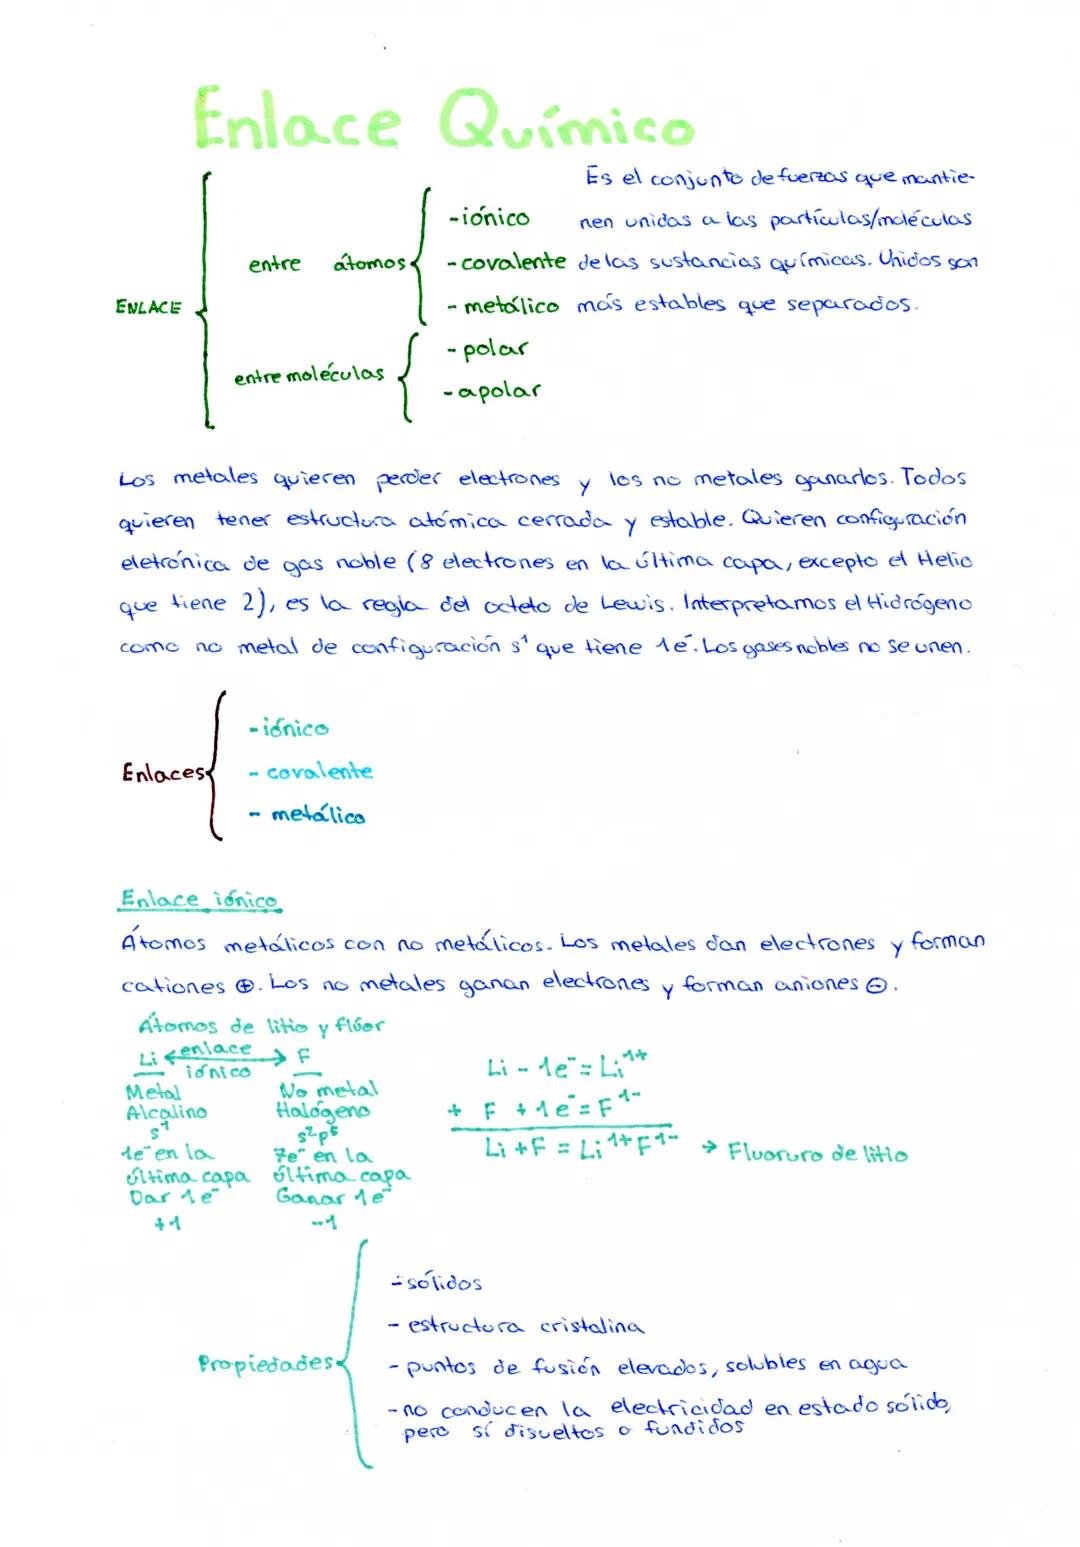 Enlace Químico
Es el conjunto de fuerzas que mantie-
nen unidas a las partículas/moléculas
de las sustancias químicas. Unidos son
más estables que separados.
ENLACE
entre átomos
-iónico
-covalente
- metálico
entre moléculas
- polar
- apolar
Los metales quieren perder electrones y los no metales ganarlos. Todos
quieren tener estructura atómica cerrada y estable. Quieren configuración
eletrónica de gas noble (8 electrones en la última capa, excepto el Helio
que tiene 2), es la regla del octeto de Lewis. Interpretamos el Hidrógeno
como no metal de configuración s¹ que tiene 1e⁻. Los gases nobles no se unen.
Enlaces
- iónico
- covalente
- metálico
Enlace iónico
Átomos metálicos con no metálicos. Los metales dan electrones y forman
cationes ⊕. Los no metales ganan electrones y forman aniones ⊖.
Átomos de litio y flúor
Li ←enlace→ F
iónico
Metal
Alcalino
s¹
1e⁻ en la
última capa
Dar 1e⁻
+1
No metal
Halógeno
s²p⁵
7e⁻ en la
última capa
Ganar 1e⁻
-1
Li - 1e⁻ = Li¹⁺
+ F + 1e⁻ = F¹⁻
Li + F = Li¹⁺F¹⁻ → Fluoruro de litio
Propiedades
- sólidos
- estructura cristalina
- puntos de fusión elevados, solubles en agua
- no conducen la electricidad en estado sólido,
pero sí disueltos o fundidos